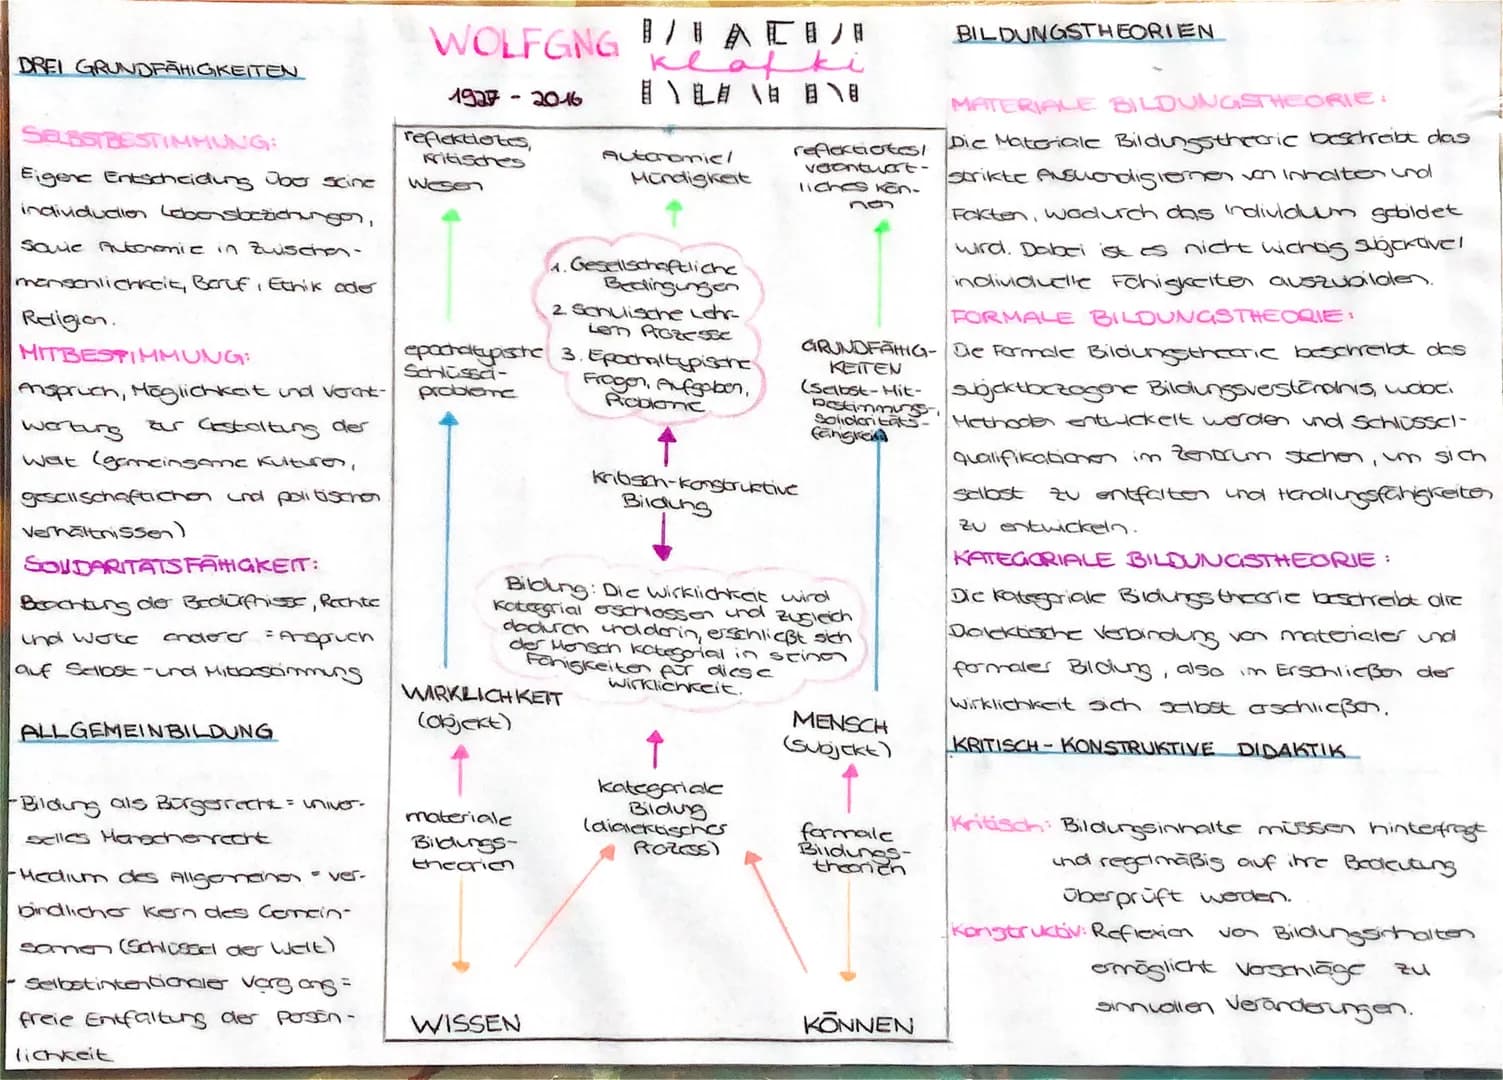 DREI GRUNDFÄHIGKEITEN
SELBSTBESTIMMUNG:
Eigene Entscheidung über seine
individuellen Lebensbeziehungen,
sowie Autonomie in Zwischen-
menschlichkeit, Beruf, Ethik oder
Religion.
MITBESTIMMUNG:
Anspruch, Möglichkeit und Verant-
wortung zur Gestaltung der
Welt (gemeinsame Kulturen,
gesellschaftlichen und politischen
Verhältnissen)
SOLIDARITÄTSFÄHIGKEIT:
Beachtung der Bedürfnisse, Rechte
und Werte anderer = Anspruch
auf Selbst- und Mitbestimmung
ALLGEMEINBILDUNG
- Bildung als Bürgerrecht = univer-
selles Menschenrecht
- Medium des Allgemeinen = ver-
bindlicher Kern des Gemein-
samen (Schlüssel der Welt)
- Selbstintentionaler Vorgang =
freie Entfaltung der Persön-
lichkeit
WOLFGNG
Klafki
1927 - 2016
reflektiertes,
kritisches
Wesen
Autonomie/
Mündigkeit
reflektiertes/
verantwort-
liches Kön-
nen
1. Gesellschaftliche
Bedingungen
2. Schulische Lehr-
Lern Prozesse
3. Epochaltypische
Fragen, Aufgaben,
Probleme
epochaltypische
Schlüssel-
probleme
GRUNDFÄHIG-
KEITEN
(Selbst- Mit-
bestimmungs-,
Solidaritäts-
fähigkeit)
Kritisch-Konstruktive
Bildung
Bildung: Die Wirklichkeit wird
kategorial erschlossen und zugleich
dadurch und darin, erschließt sich
der Mensch kategorial in seinen
Fähigkeiten für diese
Wirklichkeit.
WIRKLICHKEIT
(Objekt)
MENSCH
(Subjekt)
materiale
Bildungs-
theorien
kategoriale
Bildung
(dialektisches
Prozess)
formale
Bildungs-
theorien
WISSEN
KÖNNEN
BILDUNGSTHEORIEN
MATERIALE BILDUNGSTHEORIE:
Die Materiale Bildungstheorie beschreibt das
strikte Auswendiglernen von Inhalten und
Fakten, wodurch das Individuum gebildet
wird. Dabei ist es nicht wichtig subjektive/
individuelle Fähigkeiten auszubilden.
FORMALE BILDUNGSTHEORIE:
Die Formale Bildungstheorie beschreibt das
subjektbezogene Bildungsverständnis, wobei
Methoden entwickelt werden und Schlüssel-
qualifikationen im Zentrum stehen, um sich
selbst zu entfalten und Handlungsfähigkeiten
zu entwickeln.
KATEGORIALE BILDUNGSTHEORIE:
Die Kategoriale Bildungstheorie beschreibt die
Dialektische Verbindung von materialer und
formaler Bildung, also im Erschließen der
Wirklichkeit sich selbst erschließen.
KRITISCH-KONSTRUKTIVE DIDAKTIK
Kritisch: Bildungsinhalte müssen hinterfragt
und regelmäßig auf ihre Bedeutung
überprüft werden.
Konstruktiv: Reflexion von Bildungsinhalten
ermöglicht Vorschläge zu
sinnvollen Veränderungen.